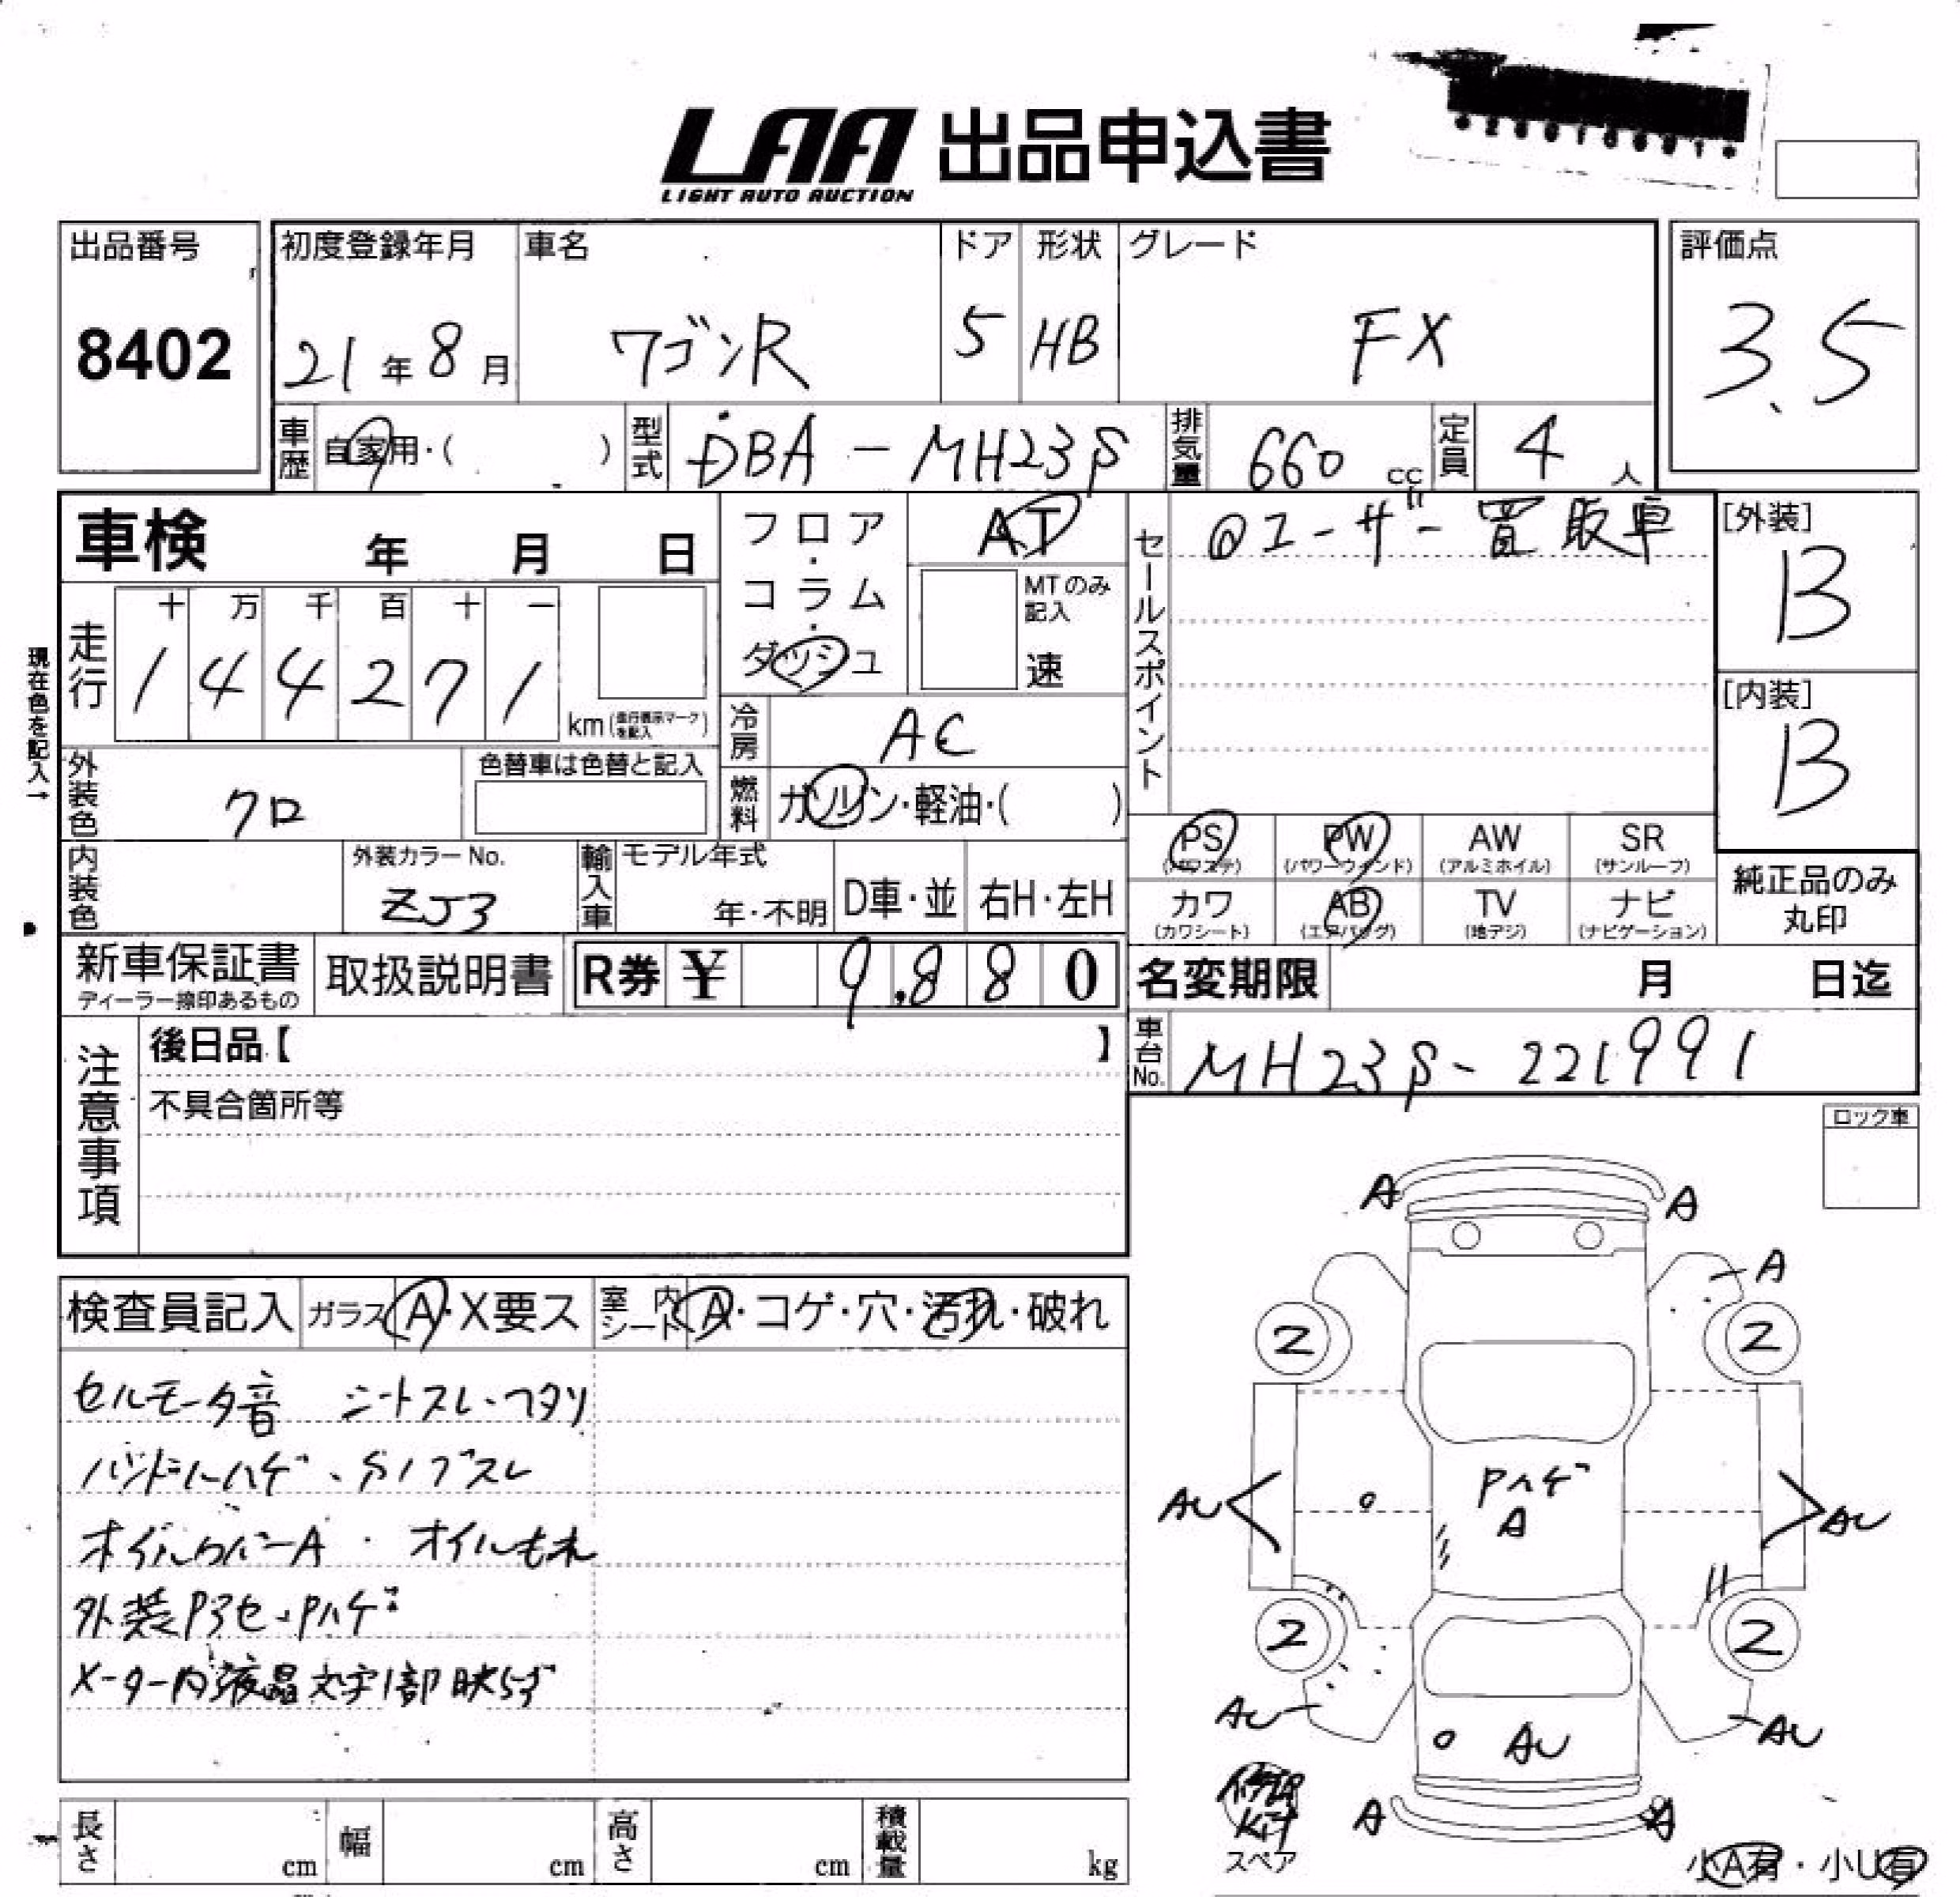 LAA 出品申込書
LIGHT AUTO AUCTION
出品番号 初度登録年月 車名 ドア 形状 グレード 評価点
8402 21年8月 ワゴンR 5 HB FX 3.5
車歴 自家用・( ) 型式 DBA-MH23S 排気量 660 cc 定員 4 人
車検 年 月 日
フロア・コラム・ダッシュ
AT
MTのみ記入
速
セールスポイント @ユーザー買取車
[外装]
B
現在色を記入→
走行 十 万 千 百 十 一
1 4 4 2 7 1
km(走行表示マークを記入)
[内装]
B
冷房 AC
外装色 クロ 色替車は色替と記入
燃料 ガソリン・軽油・( )
PS PW AW SR
(パワステ) (パワーウィンド) (アルミホイル) (サンルーフ)
カワ AB TV ナビ
(カワシート) (エアバッグ) (地デジ) (ナビゲーション)
純正品のみ
丸印
内装色 外装カラーNo. 輸入車 モデル年式
ZJ3 年・不明 D車・並 右H・左H
新車保証書 取扱説明書 R券 ¥ 9,880 名変期限 月 日迄
ディーラー捺印あるもの
車台No. MH23S-221991
注意事項
後日品【 】
不具合箇所等
ロック車
検査員記入 ガラス A・X要ス 室内シート A・コゲ・穴・汚れ・破れ
セルモータ音 シートスレ・ヘタリ
ハンドルハゲ・Sノブスレ
オイルカバーA・オイルもれ
外装Pアセ・Pハゲ
メーター内液晶文字1部映らず
A A
A
2 2
Pハゲ
A
AU AU
2 2
AU AU AU
A
Kit
スペア
小A有・小U有
長さ cm 幅 cm 高さ cm 積載量 kg